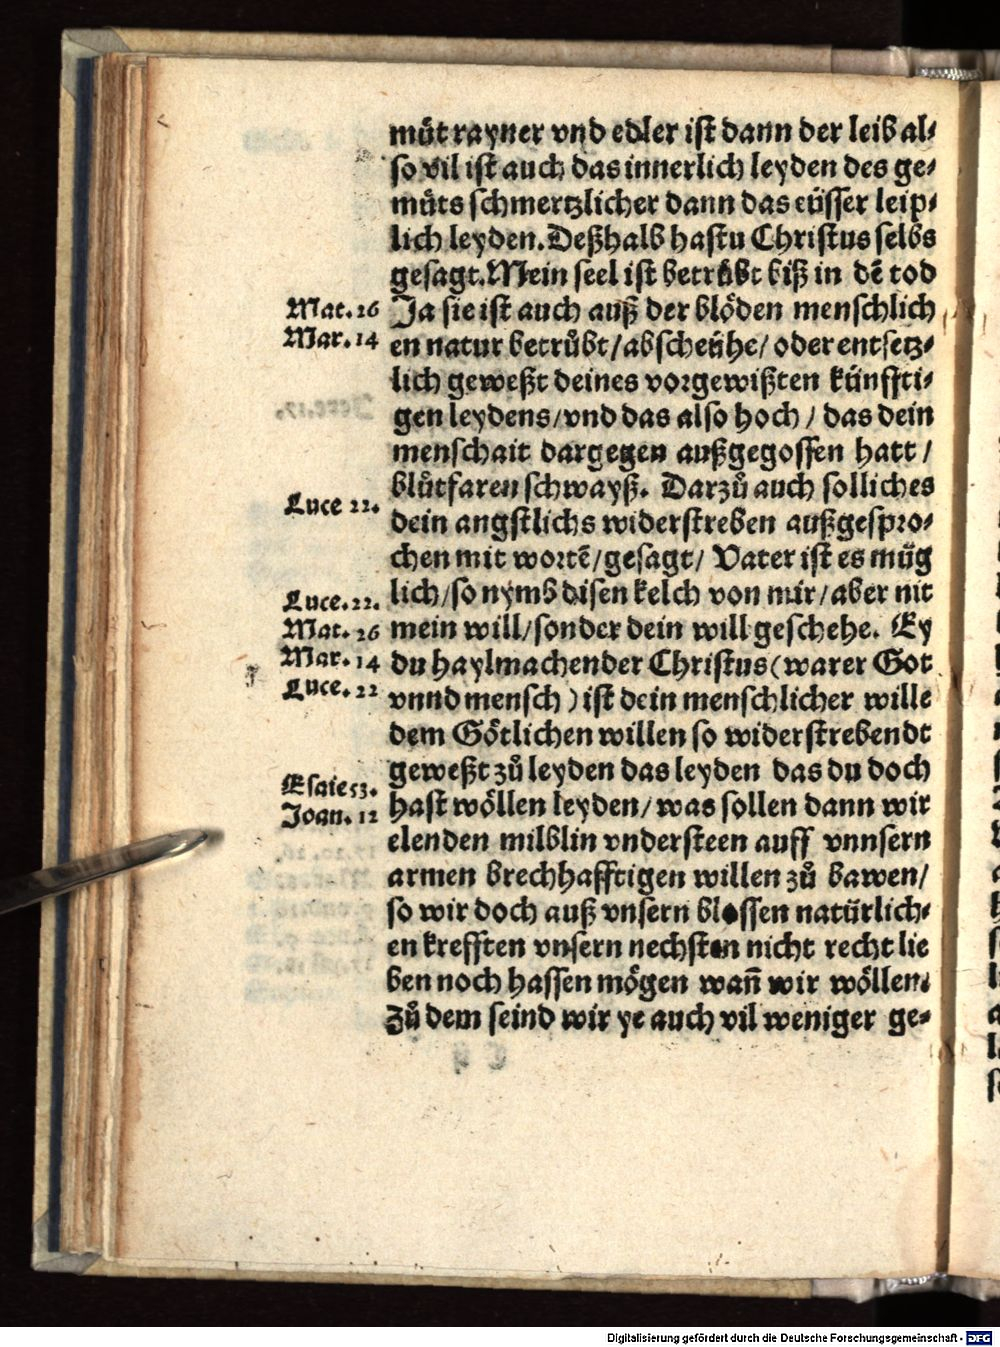 muͤt rayner vnd edler ist dann der leib al⸗
so vil ist auch das innerlich leyden des ge⸗
muͤts schmertzlicher dann das eüsser leip⸗
lich leyden. Deßhalb hastu Christus selbs
gesagt. Mein seel ist betruͤbt biß in dẽ tod
Mat. 26
Ja sie ist auch auß der bloͤden menschlich
Mar. 14
en natur betruͤbt/ abscheühe/ oder entsetz⸗
lich geweßt deines vorgewißten künffti⸗
gen leydens/ vnd das also hoch/ das dein
menschait dargegen außgegossen hatt/
bluͦtfaren schwayß. Darzuͦ auch solliches
Luce 22.
dein angstlichs widerstreben außgespro⸗
chen mit wortẽ/ gesagt/ Vater ist es müg
lich/ so nymb disen kelch von mir/ aber nit
Luce. 22.
mein will/ sonder dein will geschehe. Ey
Mat. 26
du haylmachender Christus (warer Got
Mar. 14
vnnd mensch) ist dein menschlicher wille
Luce. 22
dem Goͤtlichen willen so widerstrebendt
geweßt zuͦ leyden das leyden das du doch
Esaie 53.
hast woͤllen leyden/ was sollen dann wir
Joan. 12
elenden milblin vndersteen auff vnnsern
armen brechhafftigen willen zuͦ bawen/
so wir doch auß vnsern blossen natürlich⸗
en krefften vnsern nechsten nicht recht lie
ben noch hassen moͤgen wañ wir woͤllen.
Zuͦ dem seind wir ye auch vil weniger ge⸗
Digitalisierung gefördert durch die Deutsche Forschungsgemeinschaft - DFG